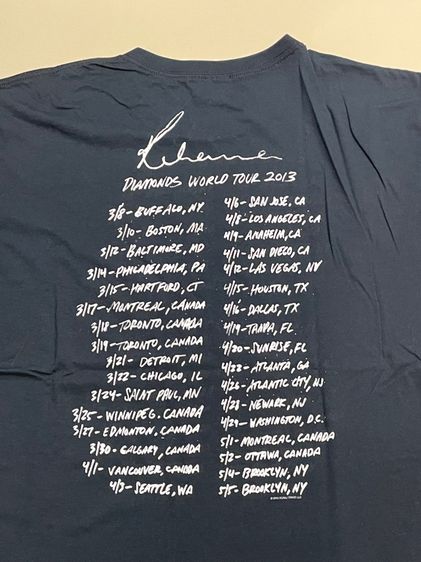 Rihanna
DIAMONDS WORLD TOUR 2013
3/8 - BUFFALO, NY
3/10 - BOSTON, MA
3/12 - BALTIMORE, MD
3/14 - PHILADELPHIA, PA
3/15 - HARTFORD, CT
3/17 - MONTREAL, CANADA
3/18 - TORONTO, CANADA
3/19 - TORONTO, CANADA
3/21 - DETROIT, MI
3/22 - CHICAGO, IL
3/24 - SAINT PAUL, MN
3/25 - WINNIPEG, CANADA
3/27 - EDMONTON, CANADA
3/30 - CALGARY, CANADA
4/1 - VANCOUVER, CANADA
4/3 - SEATTLE, WA
4/6 - SAN JOSE, CA
4/8 - LOS ANGELES, CA
4/9 - ANAHEIM, CA
4/11 - SAN DIEGO, CA
4/12 - LAS VEGAS, NV
4/15 - HOUSTON, TX
4/16 - DALLAS, TX
4/19 - TAMPA, FL
4/20 - SUNRISE, FL
4/22 - ATLANTA, GA
4/26 - ATLANTIC CITY, NJ
4/28 - NEWARK, NJ
4/29 - WASHINGTON, D.C.
5/1 - MONTREAL, CANADA
5/2 - OTTAWA, CANADA
5/4 - BROOKLYN, NY
5/5 - BROOKLYN, NY